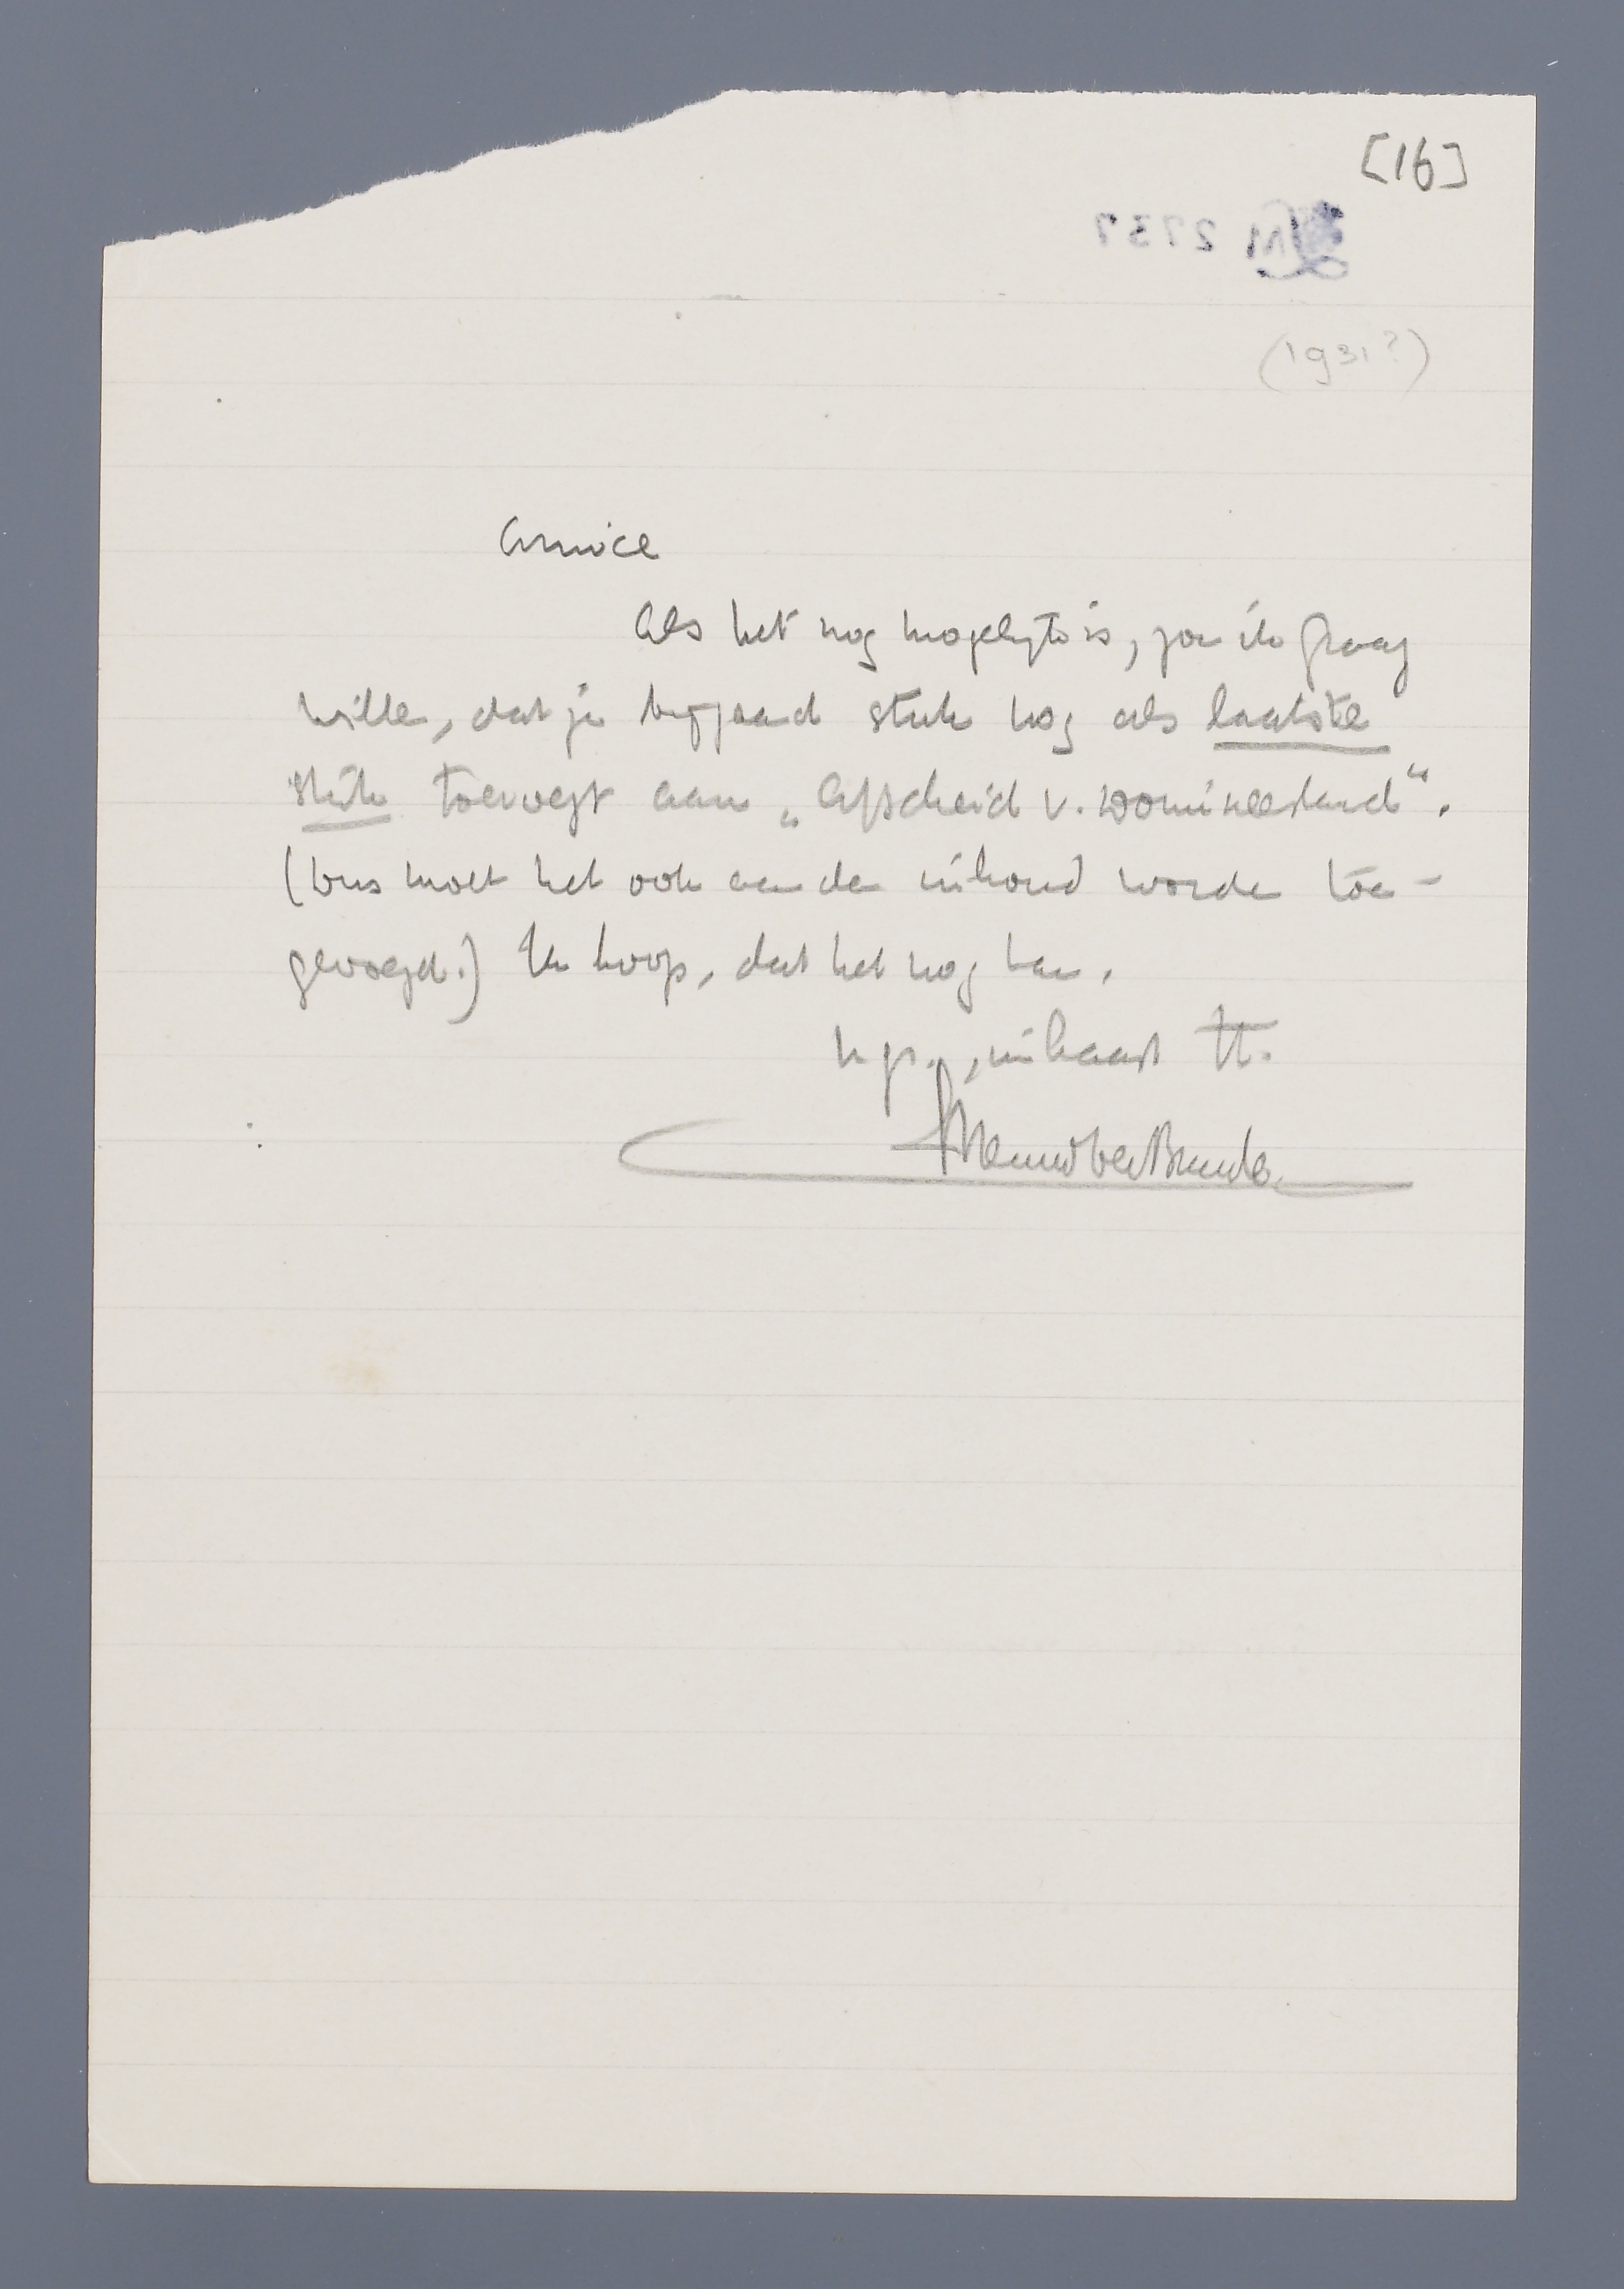 [16]
LM 2737
(1931?)
Amice
Als het nog mogelijk is, zou ik graag
willen, dat je bijgaand stuk nog als laatste
stuk toevoegt aan „Afscheid v. Domineesland“.
(Dus moet het ook aan den inhoud worden toe-
gevoegd.) Ik hoop, dat het nog kan.
h gr., in haast tt.
Menno ter Braak